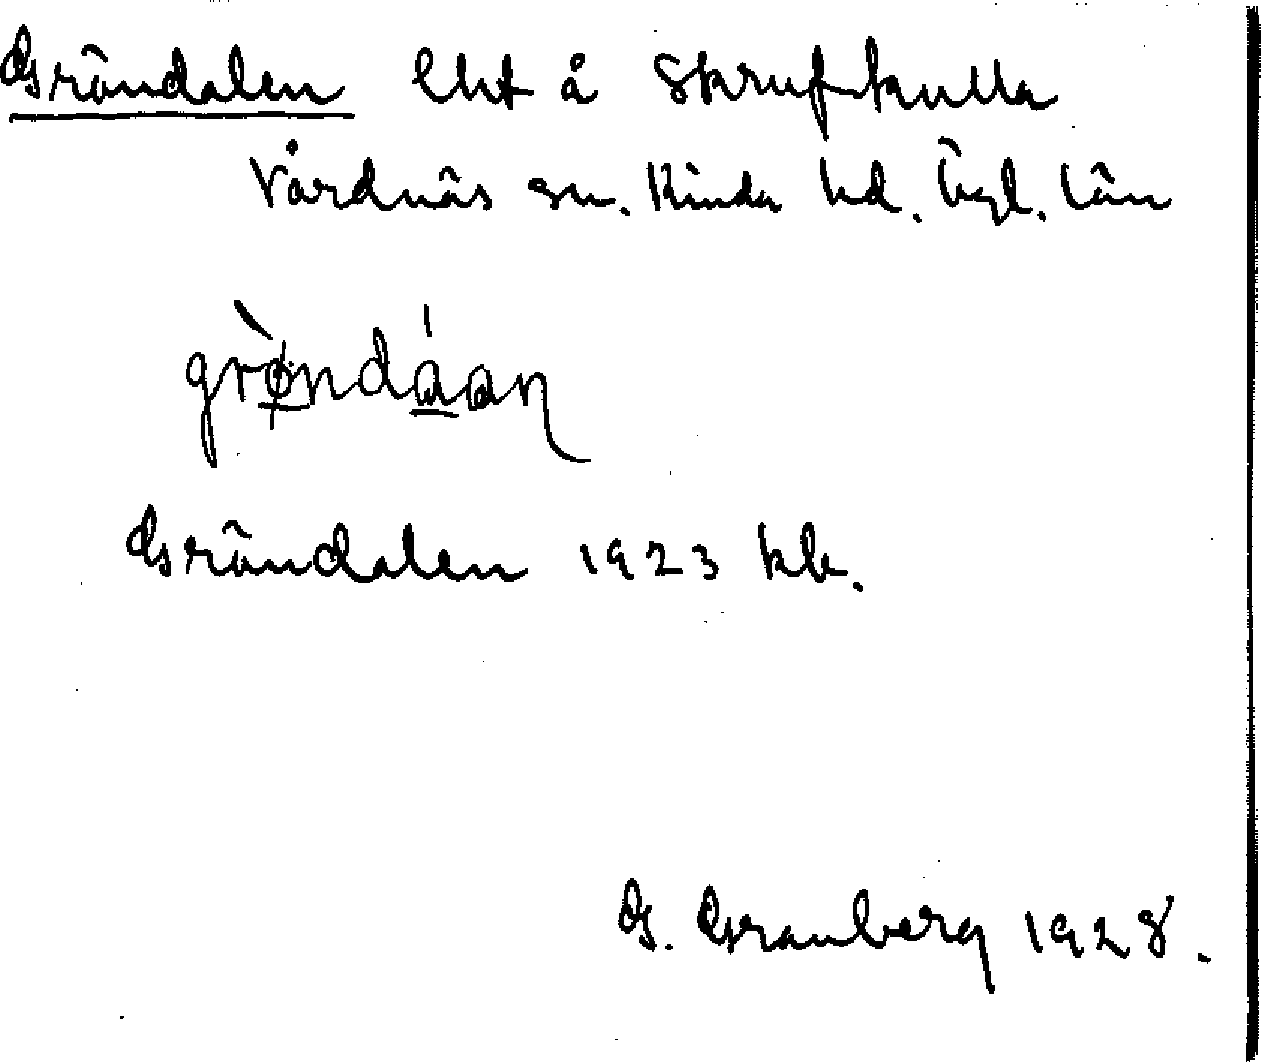 Gröndalen lht å Skrufkulla
Vårdnäs sn. Kinda hd. Ögl. län
grø̀ndáan
Gröndalen 1923 kb.
G. Granberg 1928.